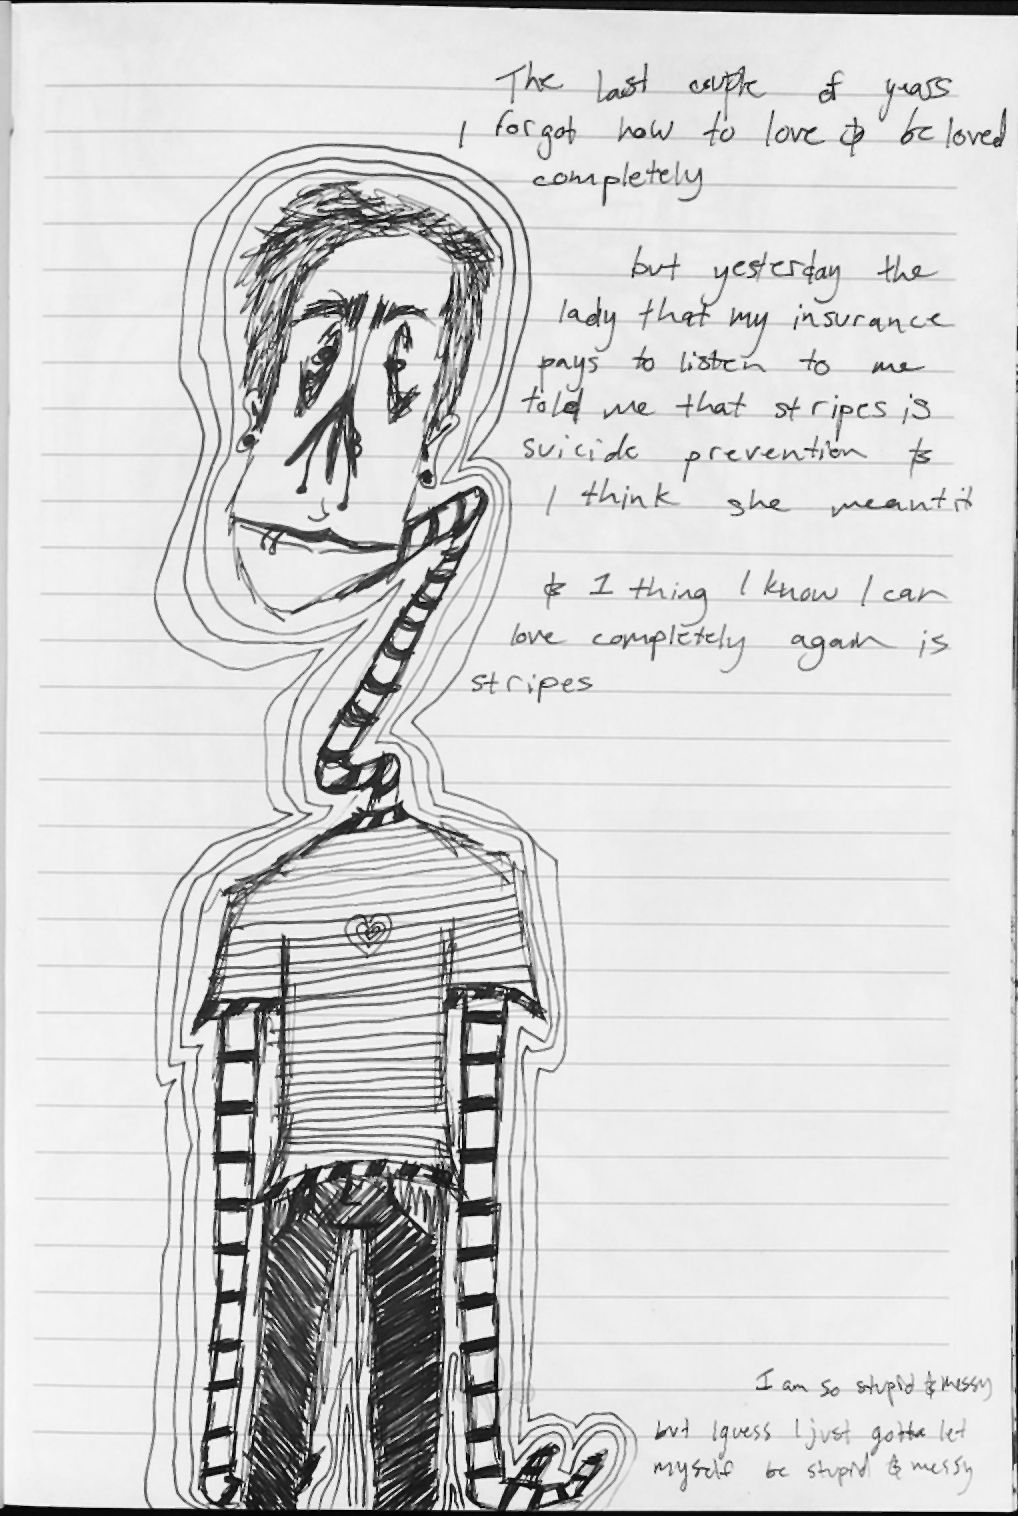 The last couple of years
I forgot how to love & be loved
completely
but yesterday the
lady that my insurance
pays to listen to me
told me that stripes is
suicide prevention &
I think she meant it
& I thing I know I can
love completely again is
stripes
I am so stupid & messy
but I guess I just gotta let
myself be stupid & messy